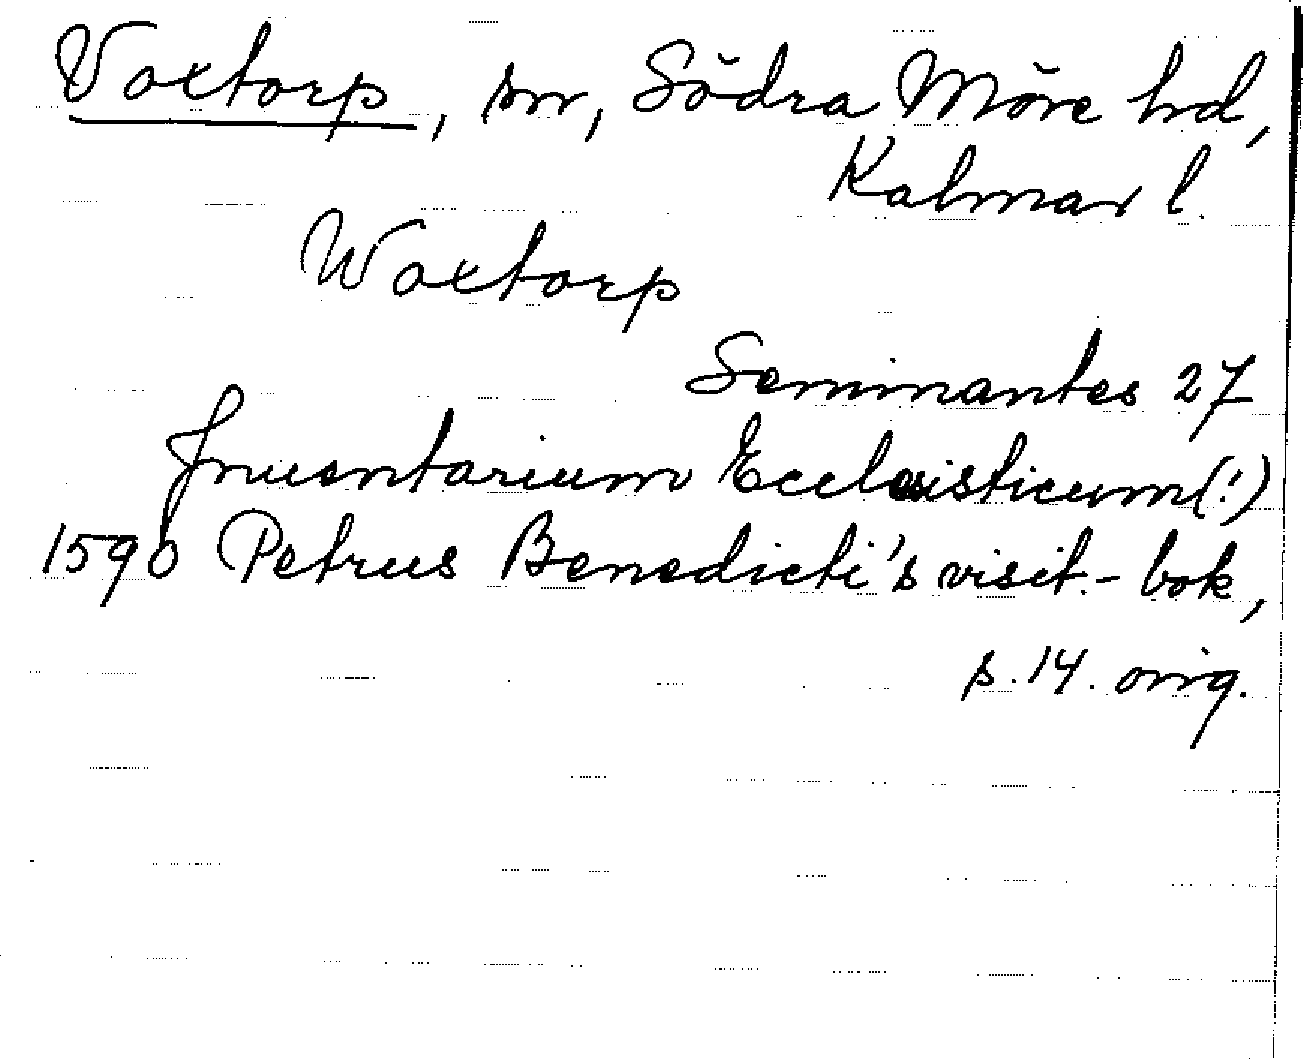 Voxtorp, sn, Södra Möre hd,
Kalmar l.
Woxtorp
Seminantes 27
Inuentarium Ecclesisticum (!)
1590 Petrus Benedicti's visit.-bok,
s. 14. orig.